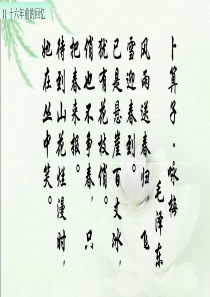 11 十六年前的回忆
卜算子·咏梅
毛泽东
风雨送春归,飞
雪迎春到。
已是悬崖百丈冰,
犹有花枝俏。
俏也不争春,只
把春来报。
待到山花烂漫时,
她在丛中笑。